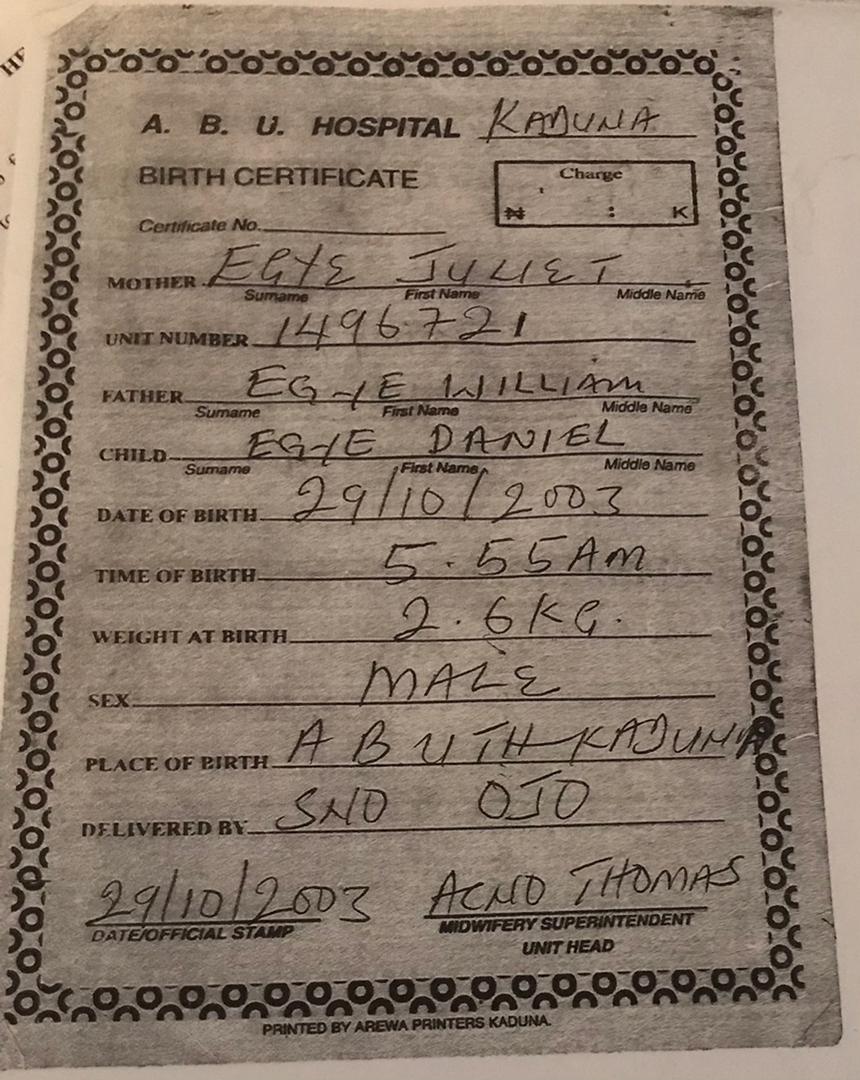 A. B. U. HOSPITAL KADUNA
BIRTH CERTIFICATE
Charge
₦ : K
Certificate No.
MOTHER EGYE JULIET
Surname First Name Middle Name
UNIT NUMBER 1496721
FATHER EGYE WILLIAM
Surname First Name Middle Name
CHILD EGYE DANIEL
Surname First Name Middle Name
DATE OF BIRTH 29/10/2003
TIME OF BIRTH 5.55AM
WEIGHT AT BIRTH 2.6KG.
SEX MALE
PLACE OF BIRTH A B U TH KADUNA
DELIVERED BY SNO OJO
29/10/2003 ACNO THOMAS
DATE/OFFICIAL STAMP MIDWIFERY SUPERINTENDENT
UNIT HEAD
PRINTED BY AREWA PRINTERS KADUNA.